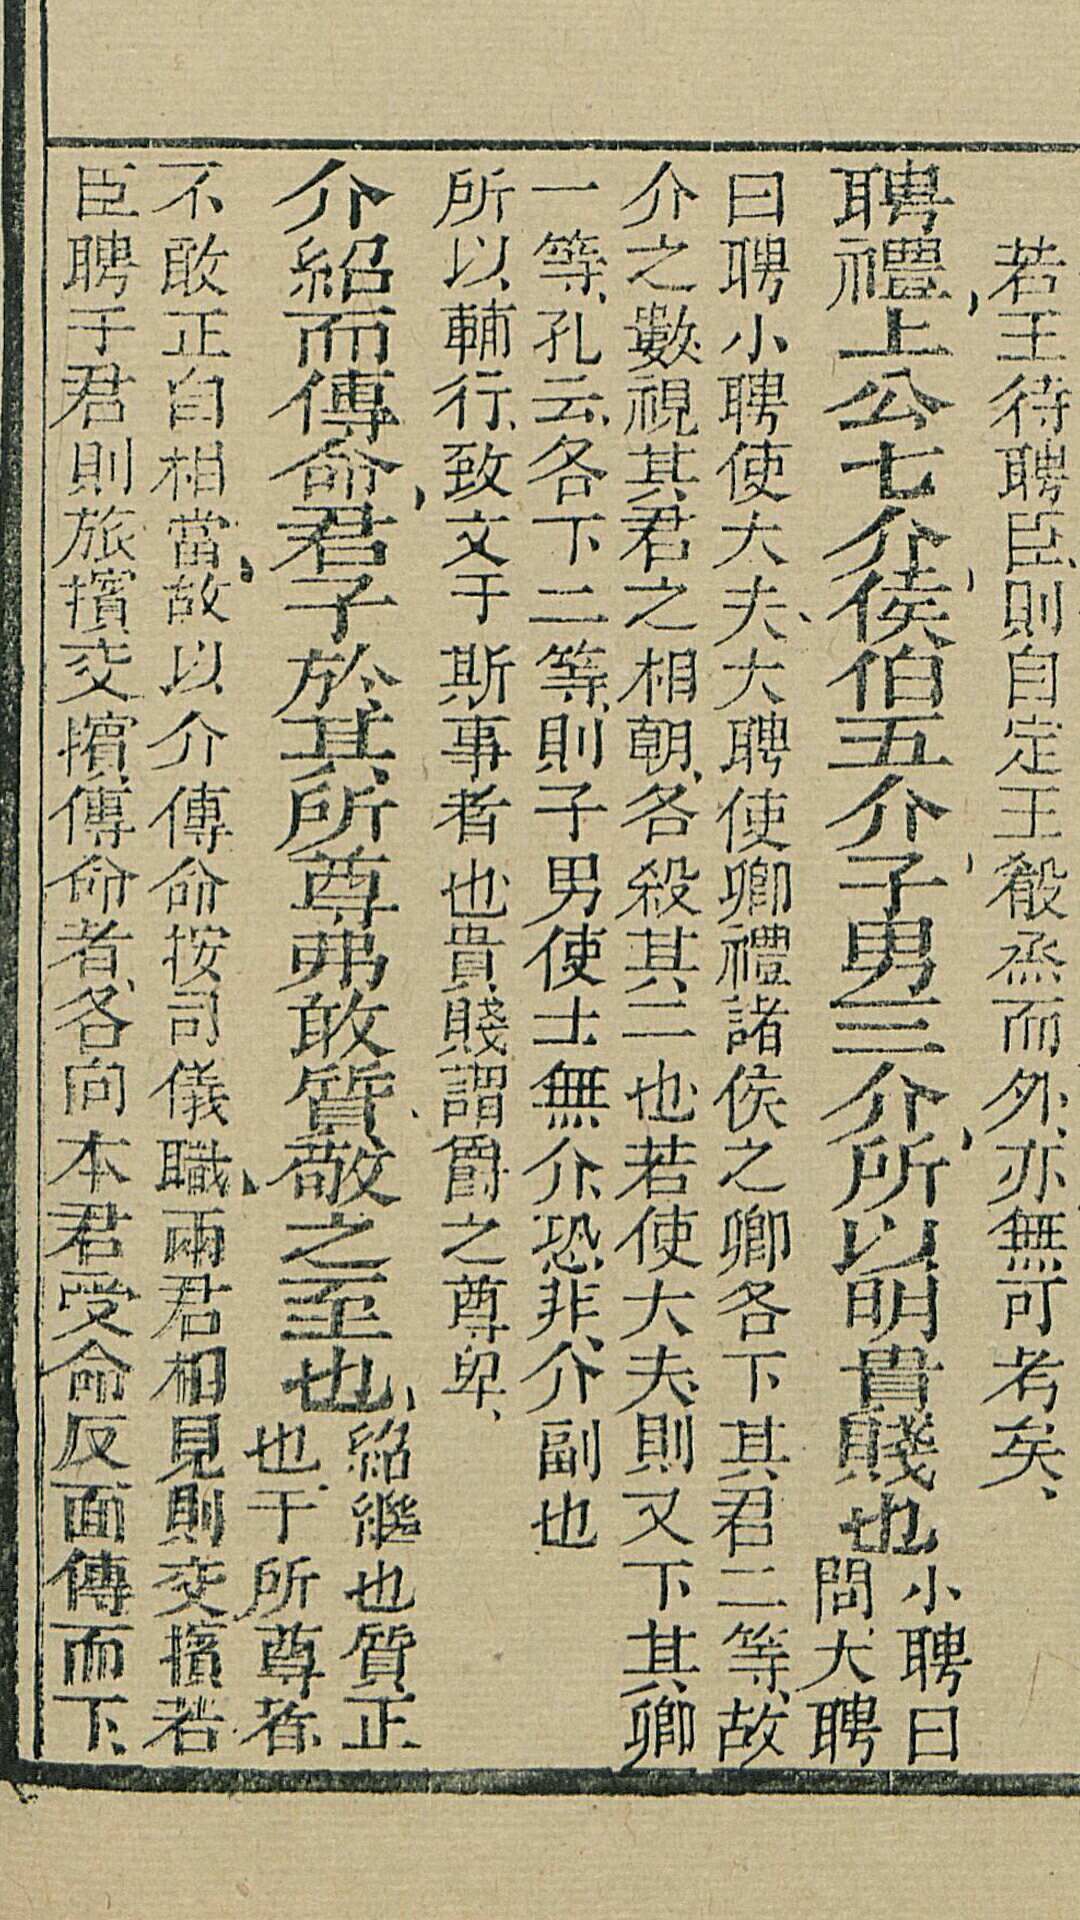 若王待聘臣則自定王殽烝而外亦無可考矣、
聘禮上公七介侯伯五介子男三介所以明貴賤也
小聘曰
問大聘
曰聘小聘使大夫、大聘使卿禮諸侯之卿各下其君二等、故
介之數視其君之相朝、各殺其二也若使大夫、則又下其卿
一等、孔云、各下二等、則子男使士無介、恐非、介副也
所以輔行、致文于斯事者也貴賤謂爵之尊卑、
介紹而傳命君子於其所尊弗敢質敬之至也
紹繼也質正
也、于所尊者、
不敢正自相當、故以介傳命按司儀職、兩君相見則交擯若
臣聘于君則旅擯交擯傳命者、各向本君受命反面傳而下、